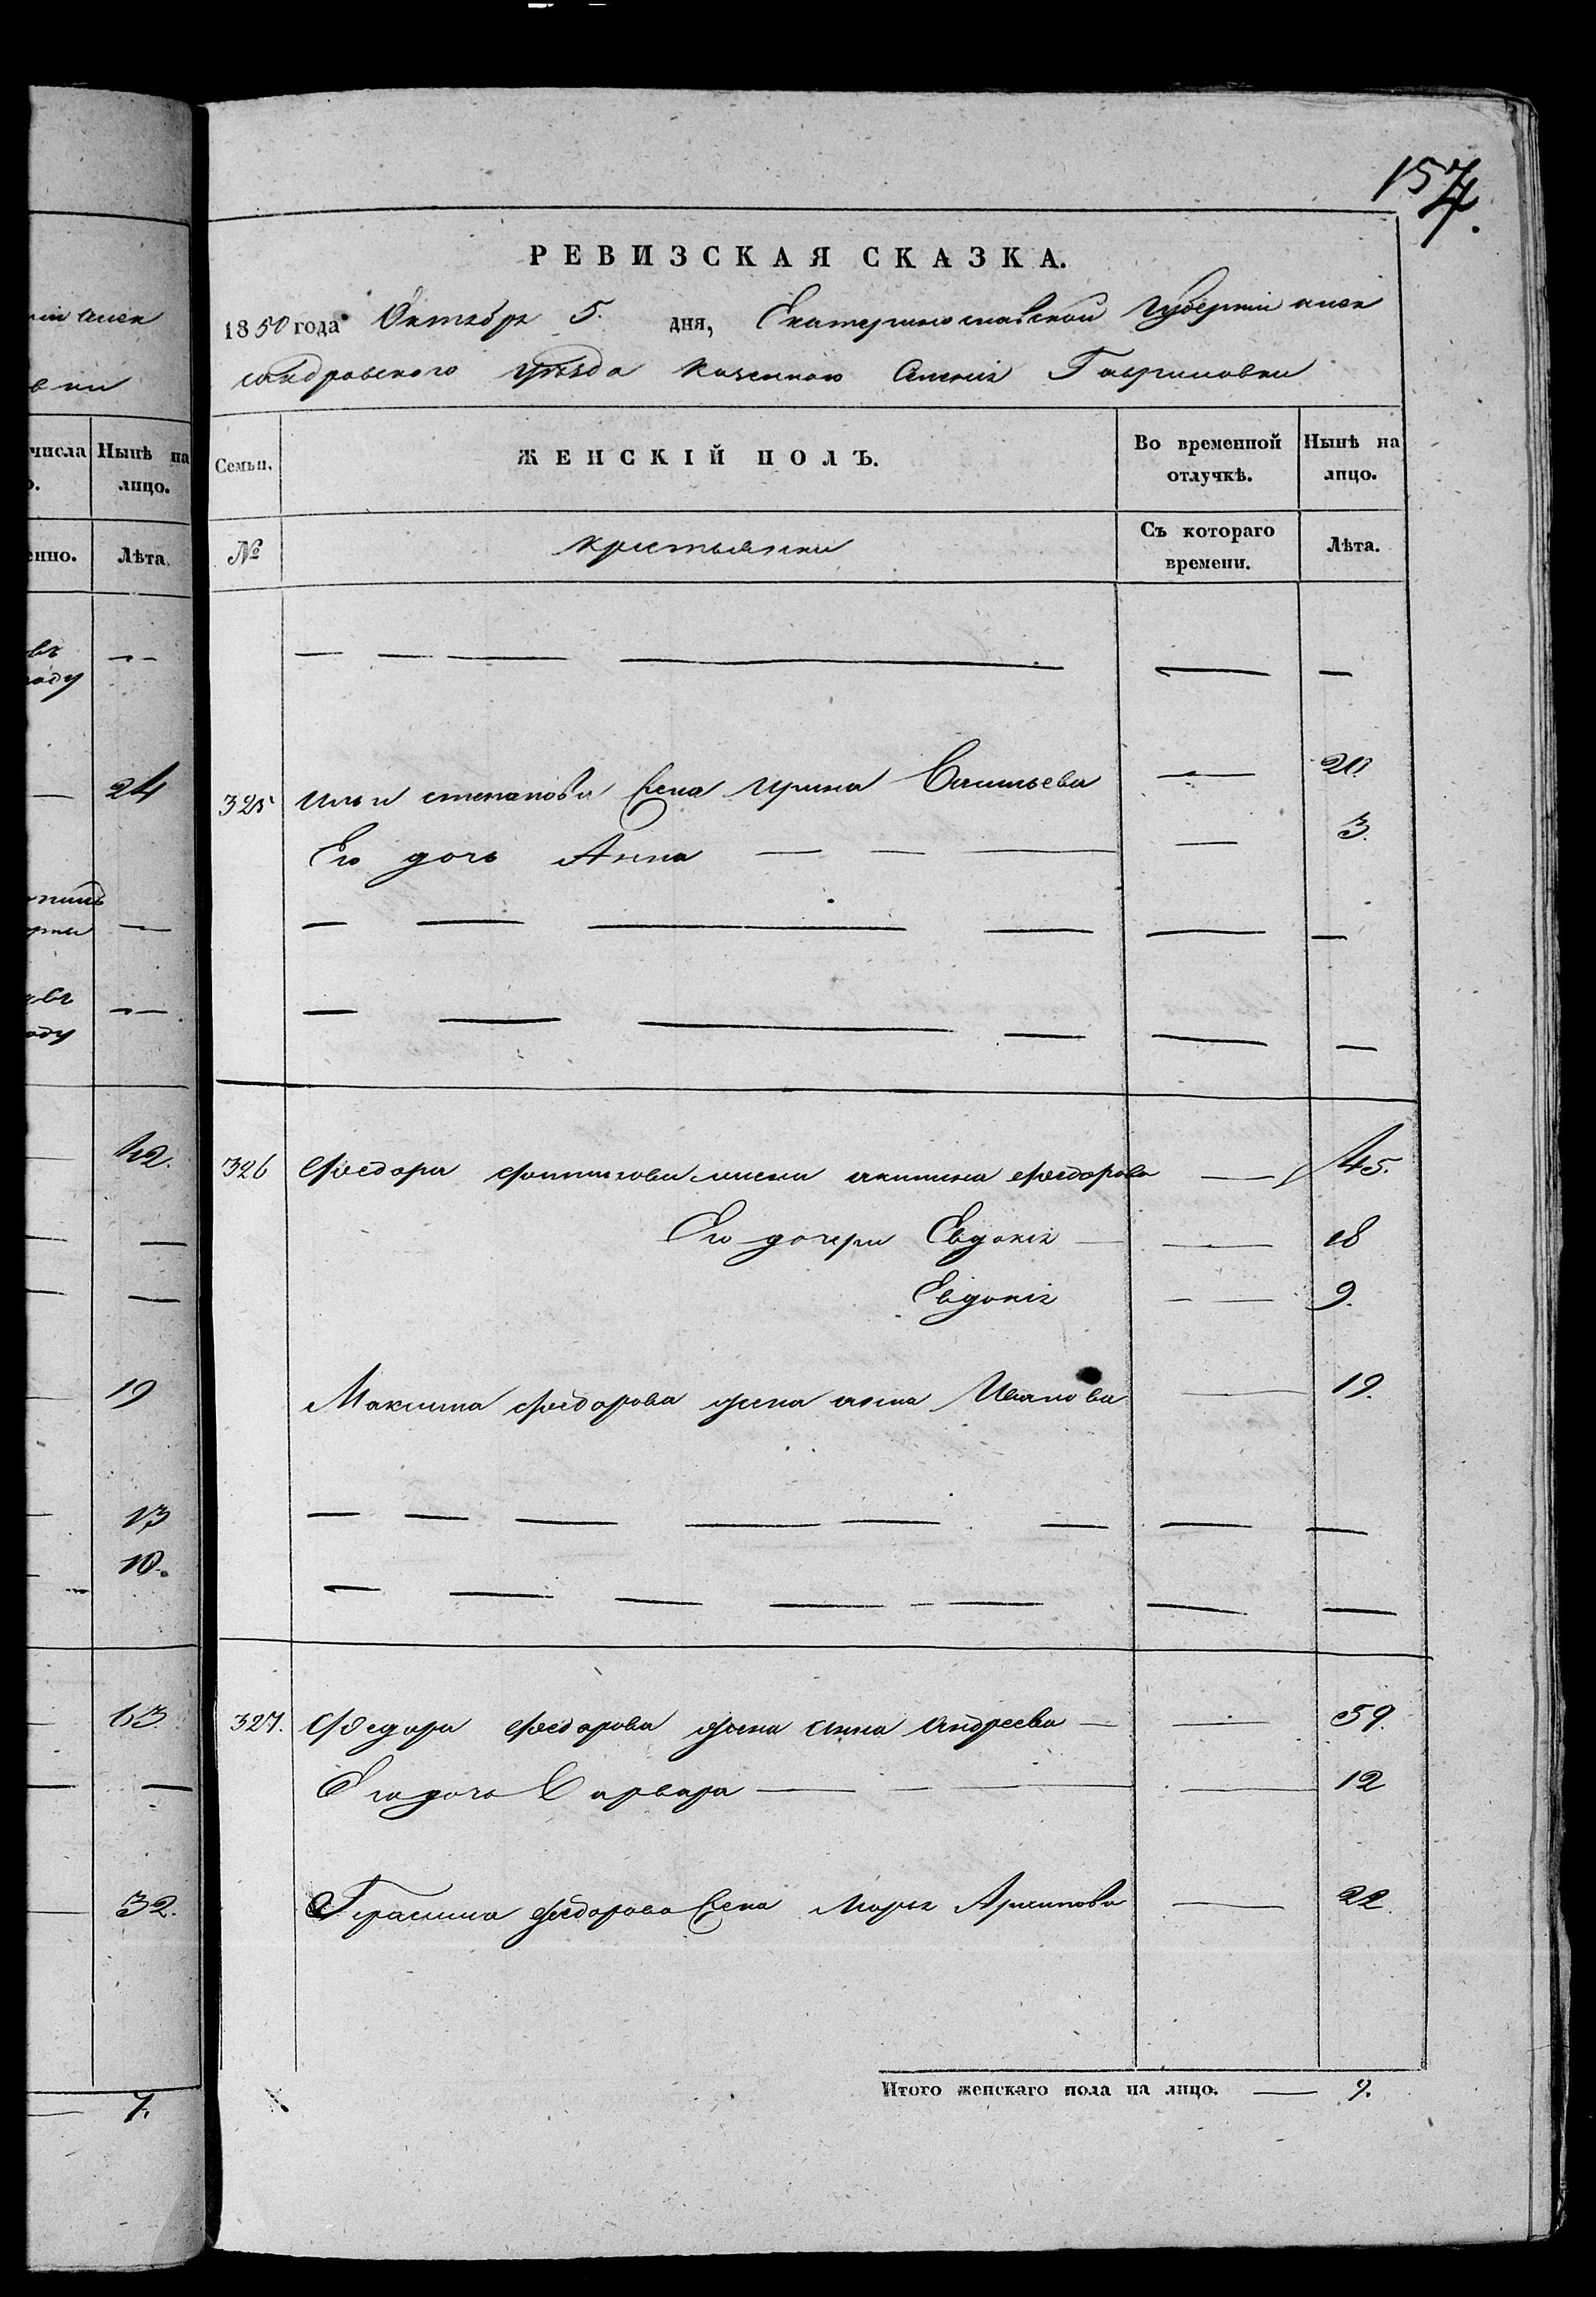 157.
РЕВИЗСКАЯ СКАЗКА.
1850 года Октября 5. дня, Екатеринославской Губернии алек
сандровского уѣзда казенного Селенія Гавриловки
Семьи.
ЖЕНСКІЙ ПОЛЪ.
Во временной отлучкѣ.
Нынѣ на лицо.
№
крестьянки
Съ котораго времени.
Лѣта.
325 Ильи степанова жена Ирина Васильева — 20.
Его дочь Анна — 3.
326 Федора мачиха акилина федорова — 45.
Его дочери Евдокія — 18
Евдокія — 9.
Максима федорова жена анна Иванова — 19.
327. Федора федорова жена анна андреева — 59.
Его дочь Варвара — 12
Герасима федорова жена Марья Архипова — 22.
Итого женскаго пола на лицо. — 9.
числа
Нынѣ на лицо.
Лѣта.
24
42.
19
13
10.
63
32.
7.